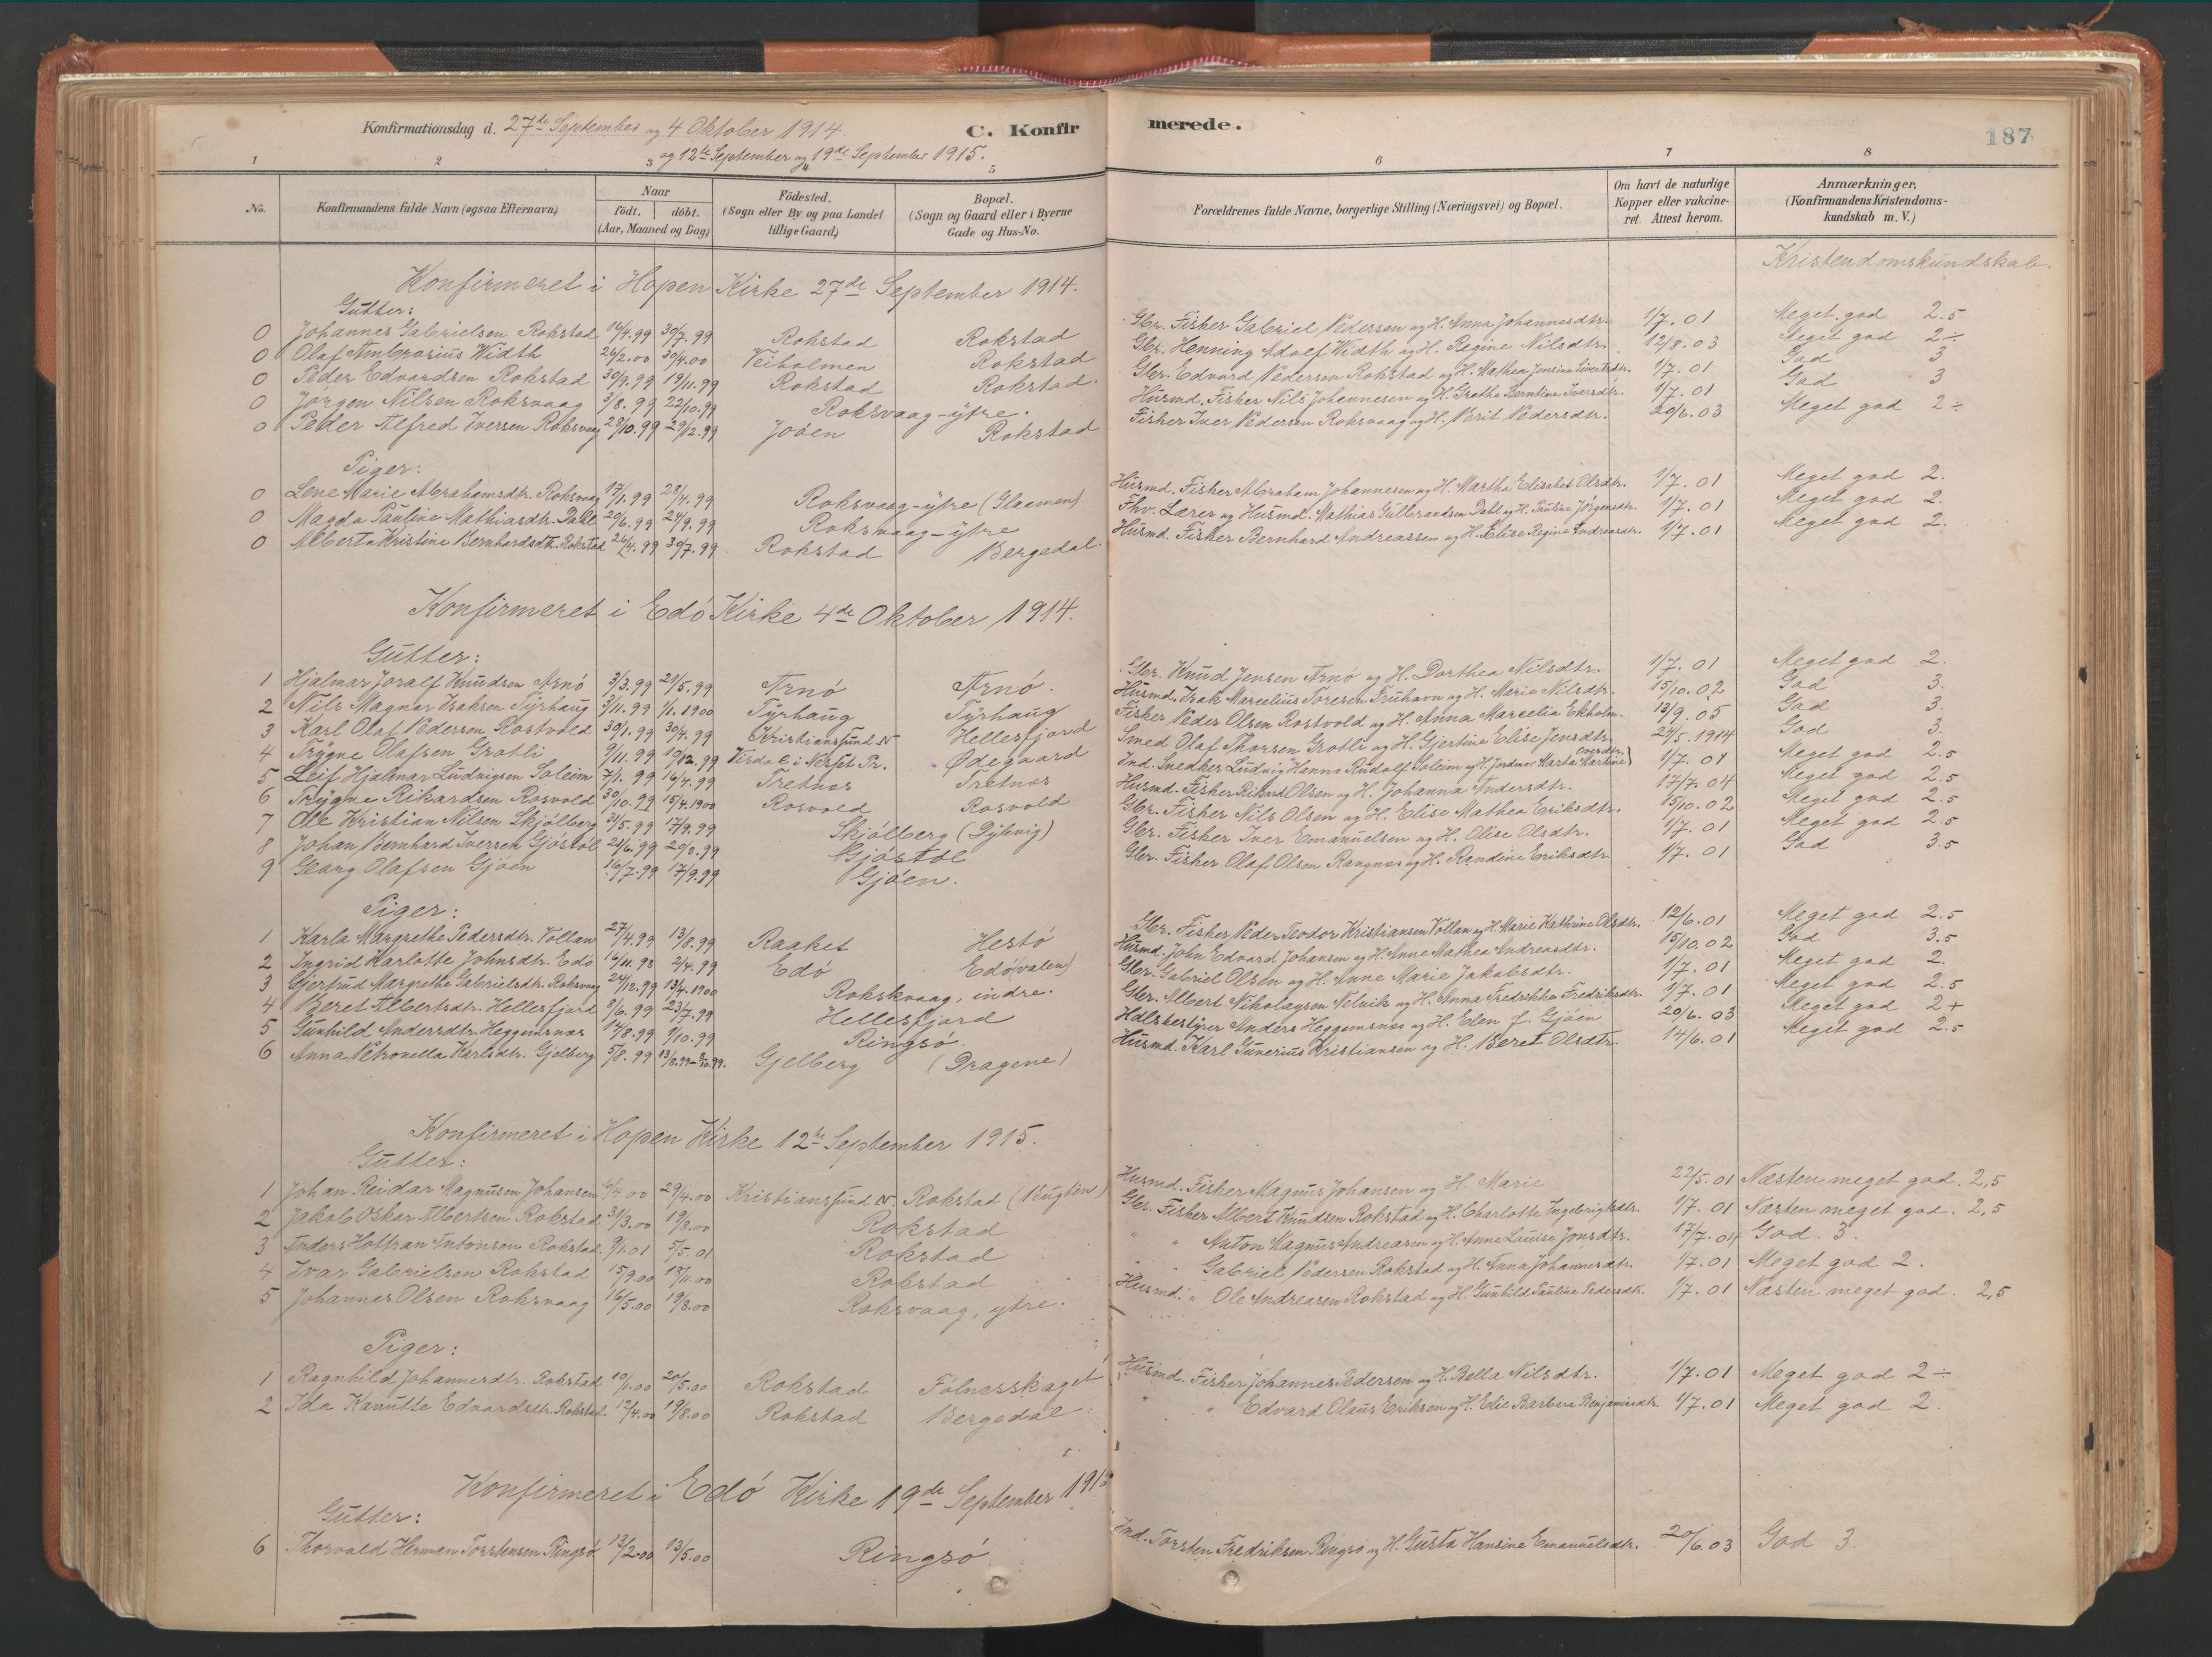 Konfirmationsdag d. 27de September og 4 Oktober 1914. C. Konfirmerede. 187
og 12te September og 19de September 1915.
1 2 3 4 5 6 7 8
No. Konfirmandens fulde Navn (ogsaa Efternavn) Naar födt. döbt. (Aar, Maaned og Dag) Födested. (Sogn eller By og paa Landet tillige Gaard) Bopæl. (Sogn og Gaard eller i Byerne Gade og Hus-No. Forældrenes fulde Navne, borgerlige Stilling (Næringsvei) og Bopæl. Om havt de naturlige Kopper eller vakcineret. Attest herom. Anmærkninger. (Konfirmandens Kristendomskundskab m. V.)
Kristendomskundskab.
Konfirmeret i Hopen Kirke 27de September 1914.
Gutter:
0 Johannes Gabrielsen Rokstad 16/4.99 30/7.99 Rokstad Rokstad Gbr. Fisker Gabriel Pedersen og H. Anna Johannesdtr. 1/7.01 Meget god 2.5
0 Olaf Ambrosius Width 26/2.00 30/4.00 Veiholmen Rokstad Gbr. Henning Adolf Width og H. Regine Nilsdtr. 12/8.03 Meget god 2÷
0 Peder Edvardsen Rokstad 30/9.99 19/11.99 Rokstad Rokstad. Gbr. Edvard Pedersen Rokstad og H. Mathea Jensine Sivertsdtr. 1/7.01 God 3
0 Jørgen Nilsen Roksvaag 3/8.99 22/10.99 Roksvaag-ytre. Husmd. Fisker Nils Johannesen og H. Grethe Berntine Iversdtr. 1/7.01 God 3
0 Peder Alfred Iversen Roksvaag 28/10.99 29/12.99 Joöen Rokstad Fisker Iver Pedersen Roksvaag og H. Berit Pedersdtr. 20/6.03 Meget god 2÷
Piger:
0 Lene Marie Abrahamsdtr. Roksvaag 17/1.99 28/4.99 Roksvaag-ytre (Glaamen) Husmd. Fisker Abraham Johannesen og H. Martha Elisabet Olsdtr. 1/7.01 Meget god 2.
0 Magda Pauline Mathiasdtr. Dahl 20/6.99 24/9.99 Roksvaag-ytre Fhv. Lærer og Husmd. Mathias Gulbrandsen Dahl og H. Pauline Jörgensdtr. 1/7.01 Meget god 2.
0 Alberta Kristine Bernhardsdtr. Rokstad 26/4.99 30/7.99 Rokstad Bergedal. Husmd. Fisker Bernhard Andreassen og H. Elise Regine Andreasdtr. 1/7.01 Meget god 2.
Konfirmeret i Edö Kirke 4de Oktober 1914.
Gutter:
1 Hjalmar Joralf Knudsen Arnö 3/3.99 21/5.99 Arnö Arnö. Gbr. Knud Jensen Arnö og H. Dorthea Nilsdtr. 1/7.01 Meget god 2.
2 Nils Magnar Isaksen Tyrhaug 3/11.99 1/1.1900 Tyrhaug Tyrhaug Husmd. Isak Marcelius Toresen Fruhavn og H. Marie Nilsdtr. 15/10.02 God 3.
3 Karl Olaf Pedersen Rostvold 30/1.99 30/4.99 Kristianssund N Hellesfjord Fisker Peder Olsen Rostvold og H. Anna Marcelia Ekholm. 13/9.05 God 3.
4 Trygve Olafsen Grotli 9/11.99 10/12.99 Visdal i Nesset Pr. Ødegaard Smed Olaf Thorsen Grotli og H. Gjertine Elise Jensdtr. 24/5.1914 God 3.
5 Leif Hjalmar Ludvigsen Soleim 7/1.99 16/4.99 Tretnæs Tretnæs Ind. Snedker Ludvig Hanno Rudolf Soleim og H. Jordmor Marta Martine Iversdtr. 1/7.01 Meget god 2.5
6 Trygve Rikardsen Rosvold 30/10.99 15/4.1900 Rosvold Rosvold Husmd. Fisker Rikard Olsen og H. Johanna Andersdtr. 17/7.04 Meget god 2.5
7 Ole Kristian Nilsen Skjölberg 31/5.99 17/9.99 Skjölberg (Dybvig) Gbr. Fisker Nils Olsen og H. Elise Mathea Eriksdtr. 15/10.02 Meget god 2.5
8 Johan Bernhard Iversen Gjöstöl 21/6.99 20/8.99 Gjöstöl Gbr. Fisker Iver Emanuelsen og H. Olise Olsdtr. 1/7.01 Meget god 2.5
9 Georg Olafsen Gjöen 16/7.99 17/9.99 Gjöen. Gbr. Fisker Olaf Olsen Rangnes og H. Randine Eriksdtr. 1/7.01 God 3.5
Piger:
1 Karla Margrethe Pedersdtr. Vollan 27/4.99 13/8.99 Raaket Hestö Gbr. Fisker Peder Teodor Kristiansen Vollan og H. Marie Kathrine Olsdtr. 12/6.01 Meget god 2.5
2 Ingrid Karlotte Johnsdtr. Edö 16/11.98 2/4.99 Edö Edö (valen) Husmd. John Edvard Johansen og H. Anne Mathea Andreasdtr. 15/10.02 God 3.5
3 Gjertrud Margrethe Gabrielsdtr. Roksvaag 24/12.99 13/4.1900 Rokskvaag, indre. Gbr. Gabriel Olsen og H. Anne Marie Jakobsdtr. 1/7.01 Meget god 2.
4 Beret Albertsdtr. Hellesfjord 8/6.99 23/7.99 Hellesfjord Gbr. Albert Nikolaysen Nelvik og H. Anna Fredrikke Fredriksdtr. 1/7.01 Meget god 2.5
5 Gunhild Andersdtr. Heggemsnæs 14/8.99 1/10.99 Ringsö. Hdlsbestyrer Anders Heggemsnæs og H. Elen J. Gjöen 20/6.03 Meget god 2+
6 Anna Petronella Karlsdtr. Gjelberg 5/8.99 13/8.99 - Gjelberg (Dragene) Husmd. Karl Gunerius Kristiansen og H. Beret Olsdtr. 14/6.01 Meget god 2.5
Konfirmeret i Hopen Kirke 12te September 1915.
Gutter:
1 Johan Reidar Magnusen Johansen 6/4.00 29/4.00 Kristianssund N Rokstad (Bugten) Husmd. Fisker Magnus Johansen og H. Marie 22/5.01 Næsten meget god. 2,5
2 Jakob Oskar Albertsen Rokstad 31/3.00 19/8.00 Rokstad Gbr. Fisker Albert Knudsen Rokstad og H. Charlotte Ingebrigtsdtr. 1/7.01 Næsten meget god. 2,5
3 Anders Hottran Antonsen Rokstad 9/1.01 5/5.01 Rokstad " " Anton Magnus Andreasen og H. Anne Louise Jonsdtr. 17/7.04 God. 3.
4 Ivar Gabrielsen Rokstad 15/9.00 18/11.00 Rokstad " " Gabriel Pedersen Rokstad og H. Anna Johannesdtr. 1/7.01 Meget god 2.
5 Johannes Olsen Roksvaag 16/5.00 19/8.00 Roksvaag, ytre. Husmd. " Ole Andreasen Rokstad og H. Gunhild Pauline Pedersdtr. 1/7.01 Næsten meget god. 2,5
Piger:
1 Ragnhild Johannesdtr. Rokstad 10/1.00 20/5.00 Rokstad Fölnesskaget Husmd. Fisker Johannes Pedersen og H. Bella Nilsdtr. 1/7.01 Meget god 2÷
2 Ida Kanutte Edvardsdtr. Rokstad. 12/4.00 19/8.00 Rokstad Bergedal " " Edvard Olaus Eriksen og H. Elie Barbara Benjaminsdtr. 1/7.01 Meget god 2.
Konfirmeret i Edö Kirke 19de September
Gutter:
6 Thorvald Herman Torstensen Ringsö 13/2.00 13/5.00 Ringsö Ind. Torsten Fredriksen Ringsö og H. Gusta Hansine Emanuelsdtr. 20/6.03 God 3.